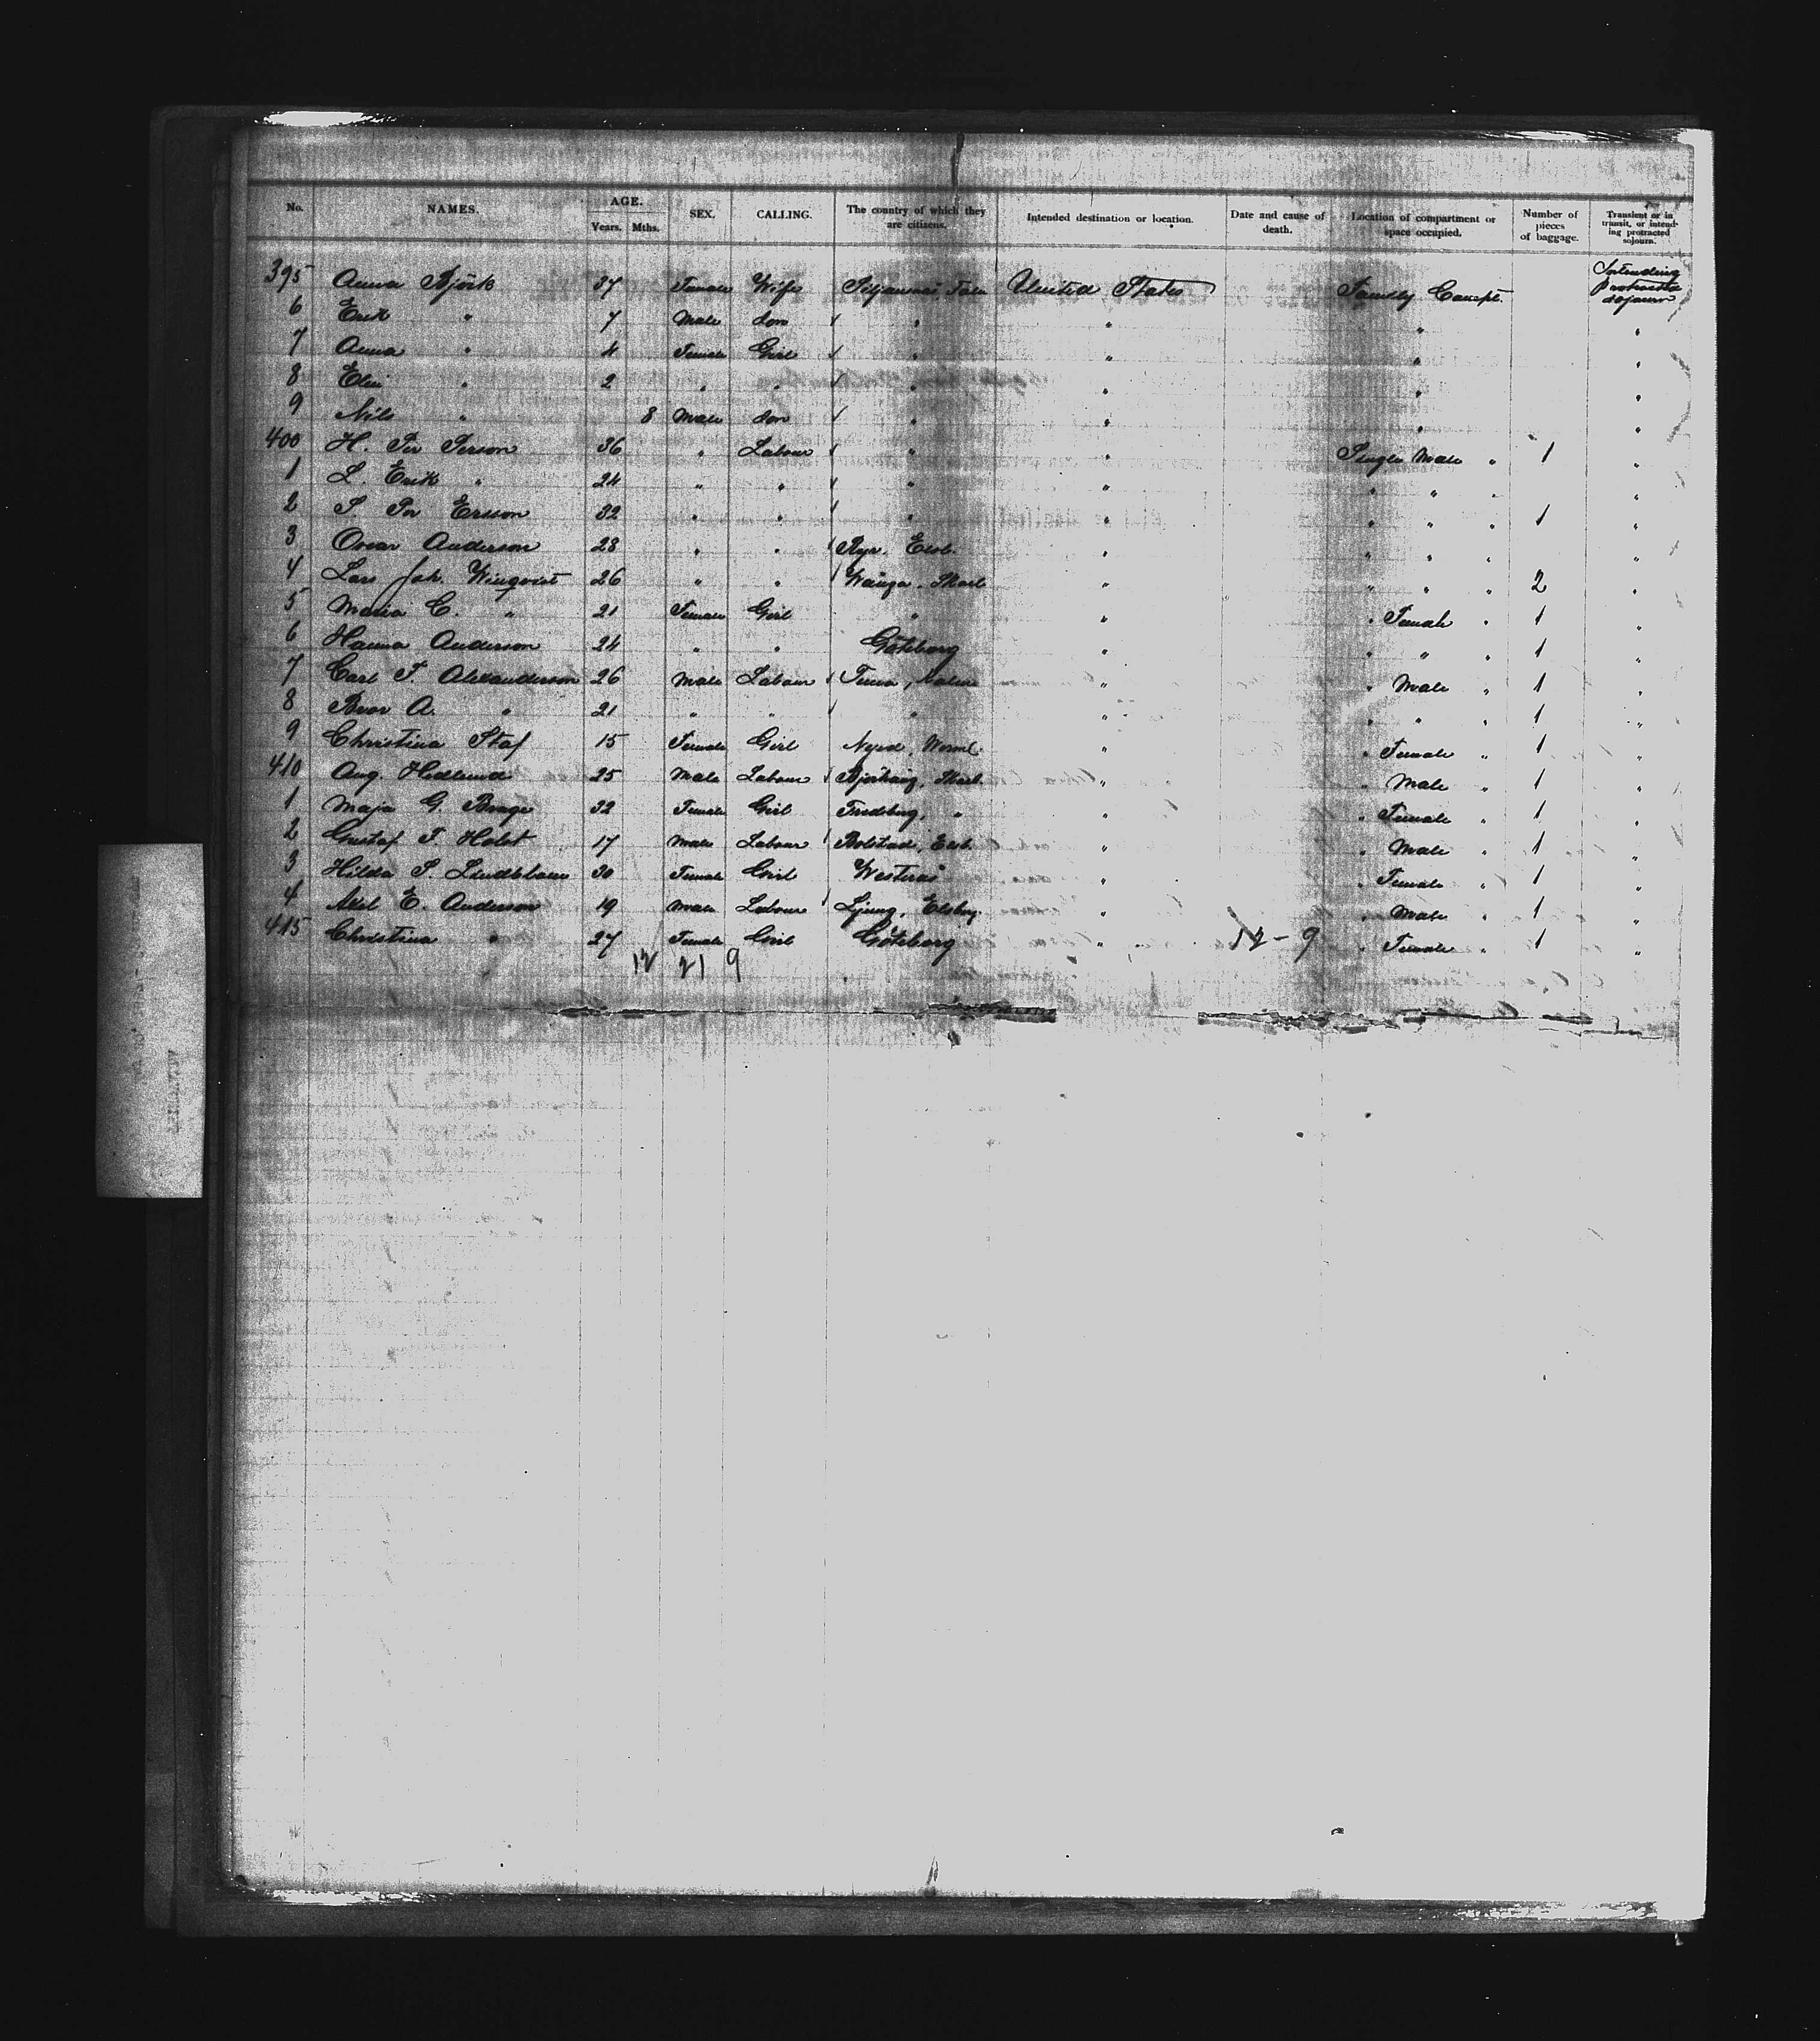 No. NAMES. AGE. Years. Mths. SEX. CALLING. The country of which they are citizens. Intended destination or location. Date and cause of death. Location of compartment or space occupied. Number of pieces of baggage. Transient or in transit, or intending protracted sojourn.
395 Anna Björk 37 Female Wife United States Family Compt. Intending Protracted sojourn
6 Erik " 7 Male Son " " " "
7 Anna " 4 Female Girl " " " "
8 Elin " 2 " " " " " "
9 Nils " 8 Male Son " " " "
400 H. Per Person 36 " Labour " " Single Male " 1 "
1 L. Erik " 24 " " " " " " " "
2 S. Per Ersson 32 " " " " " " " 1 "
3 Oscar Anderson 28 " " Ryr. Elsb. " " " " "
4 Lars Joh. Winqvist 26 " " Wånga. Skarb " " " " 2 "
5 Maria C. " 21 Female Girl " " " Female " 1 "
6 Hanna Anderson 24 " " Göteborg " " " " 1 "
7 Carl F. Alexanderson 26 Male Labour " " Male " 1 "
8 Bror A. " 21 " " " " " " " 1 "
9 Christina Staf 15 Female Girl Nyed, Werml. " " Female " 1 "
410 Aug. Hedlund 25 Male Labour Skarb. " " Male " 1 "
1 Maja G. Brage 32 Female Girl Fredsberg, " " " Female " 1 "
2 Gustaf F. Holst 17 Male Labour Bolstad, Elsb. " " Male " 1 "
3 Hilda S. Lindblom 30 Female Girl Westerås " " Female " 1 "
4 Axel E. Anderson 19 Male Labour Ljung, Elsbg. " " Male " 1 "
415 Christina " 27 Female Girl Göteborg " 12-9 " Female " 1 "
12 21 9